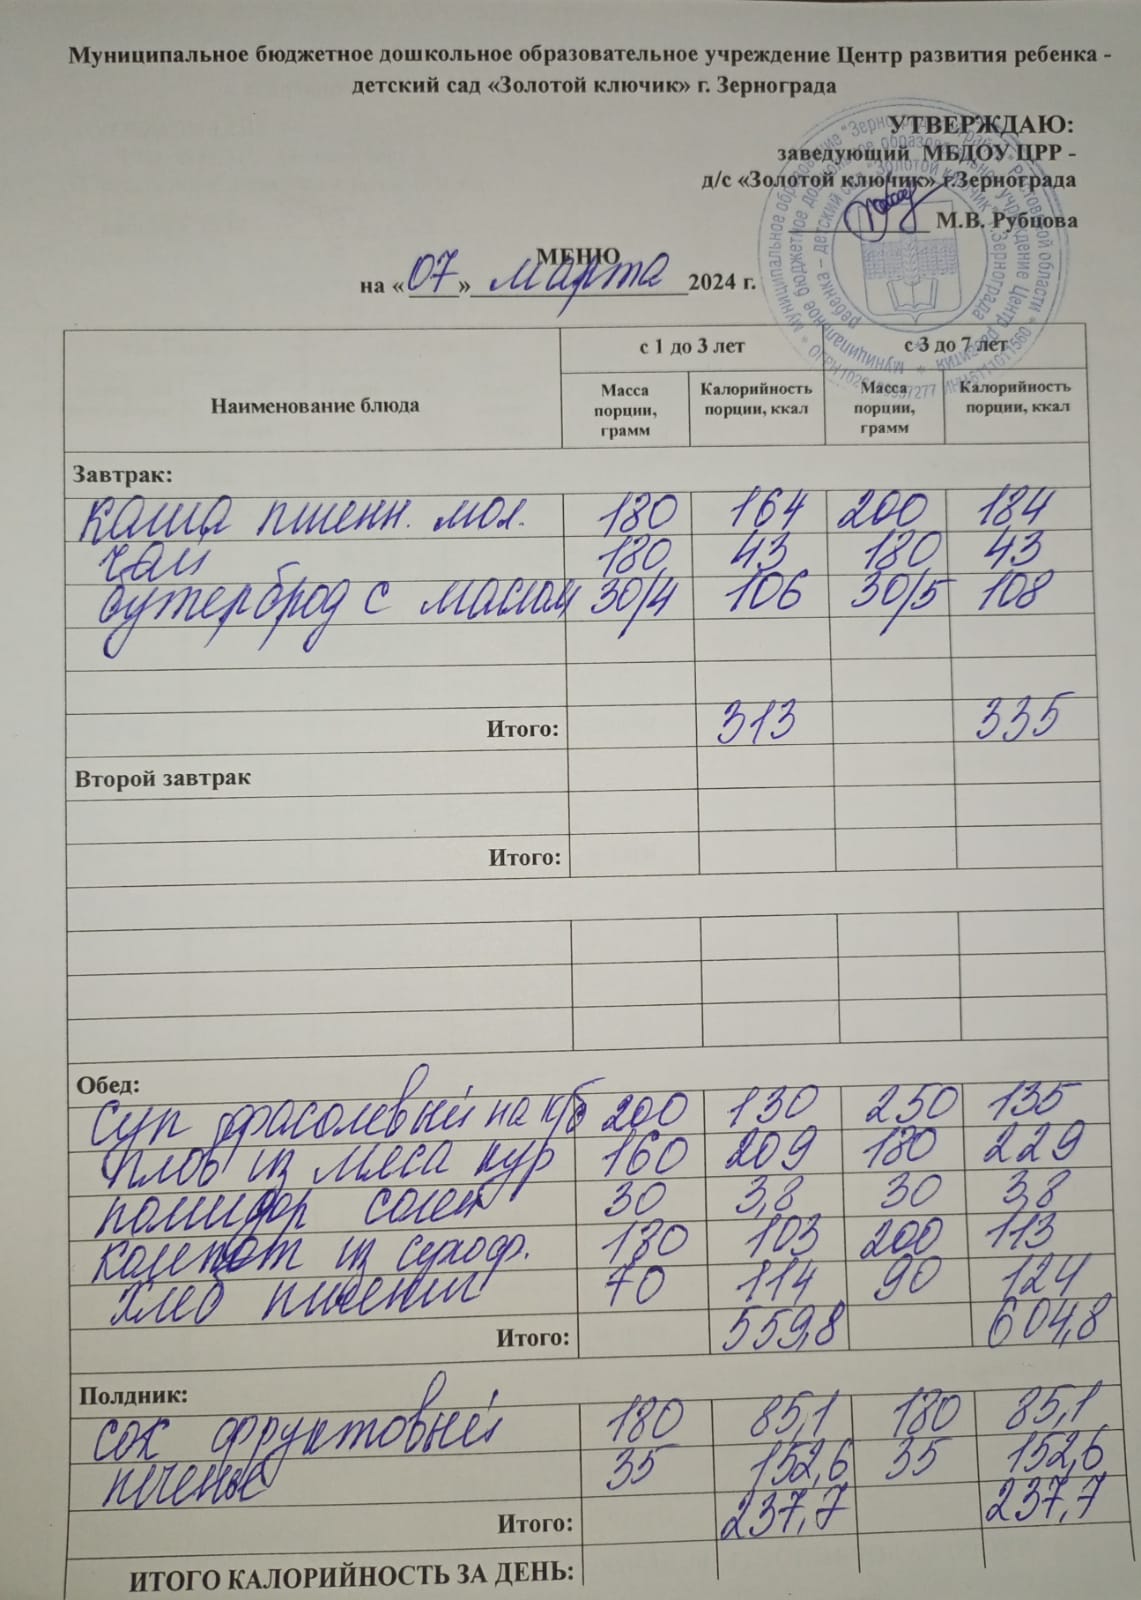 Муниципальное бюджетное дошкольное образовательное учреждение Центр развития ребенка -
детский сад «Золотой ключик» г. Зернограда
УТВЕРЖДАЮ:
заведующий МБДОУ ЦРР -
д/с «Золотой ключик» г.Зернограда
М.В. Рубцова
МЕНЮ
на «07» марта 2024 г.
Наименование блюда с 1 до 3 лет с 3 до 7 лет
Масса порции, грамм Калорийность порции, ккал Масса порции, грамм Калорийность порции, ккал
Завтрак:
каша пшенн. мол. 180 164 200 184
чай 180 43 180 43
бутерброд с маслом 30/4 106 30/5 108
Итого: 313 335
Второй завтрак
Итого:
Обед:
суп фасолевый на к/б 200 130 250 135
плов из мяса кур 160 209 180 229
помидор солен 30 3,8 30 3,8
компот из сухоф. 180 103 200 113
хлеб пшенич 70 114 90 124
Итого: 559,8 604,8
Полдник:
сок фруктовый 180 85,1 180 85,1
печенье 35 152,6 35 152,6
Итого: 237,7 237,7
ИТОГО КАЛОРИЙНОСТЬ ЗА ДЕНЬ: